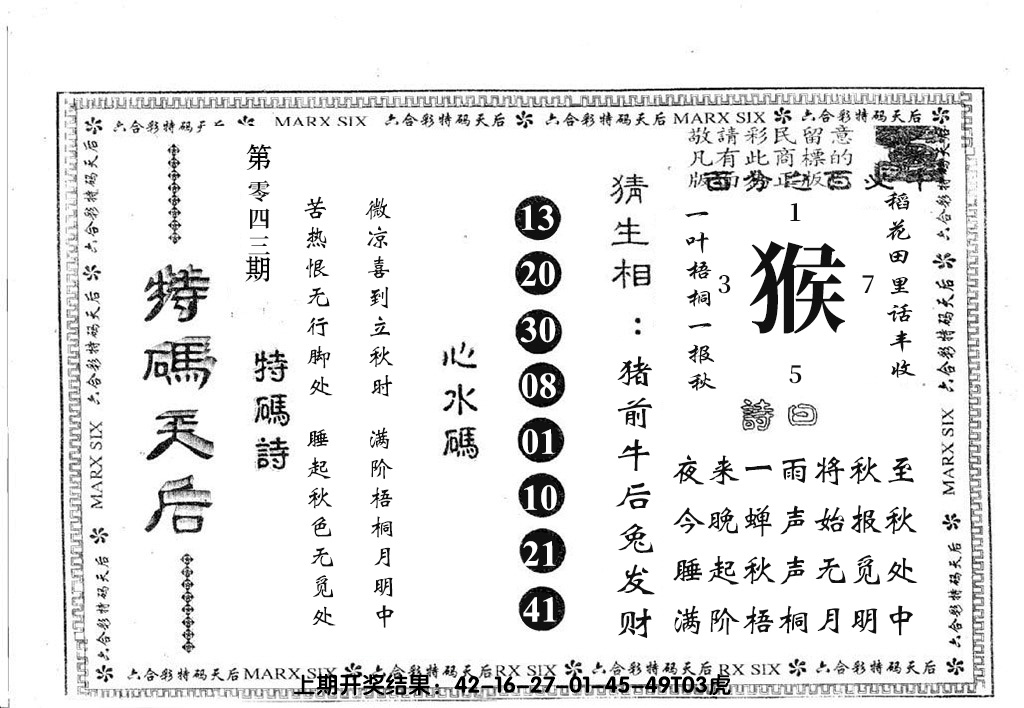 六合彩特码天后 MARX SIX 六合彩特码天后 六合彩特码天后 MARX SIX 六合彩特码天后
敬請彩民留意
凡有此商標的
版面为正版
一叶梧桐一报秋
稻花田里话丰收
1
3
猴
7
5
詩曰
夜来一雨将秋至
今晚蝉声始报秋
睡起秋声无觅处
满阶梧桐月明中
猜生相：猪前牛后兔发财
13
20
30
08
01
10
21
41
心水碼
微凉喜到立秋时 满阶梧桐月明中
苦热恨无行脚处 睡起秋色无觅处
特碼詩
第零四三期
特碼天后
六合彩特码天后 MARX SIX 六合彩特码天后
六合彩特码天后 MARX SIX 六合彩特码天后
六合彩特码天后MARX SIX 六合彩特码天后RX SIX 六合彩特码天后RX SIX 六合彩特码天后
上期开奖结果：42-16-27-01-45-49T03虎